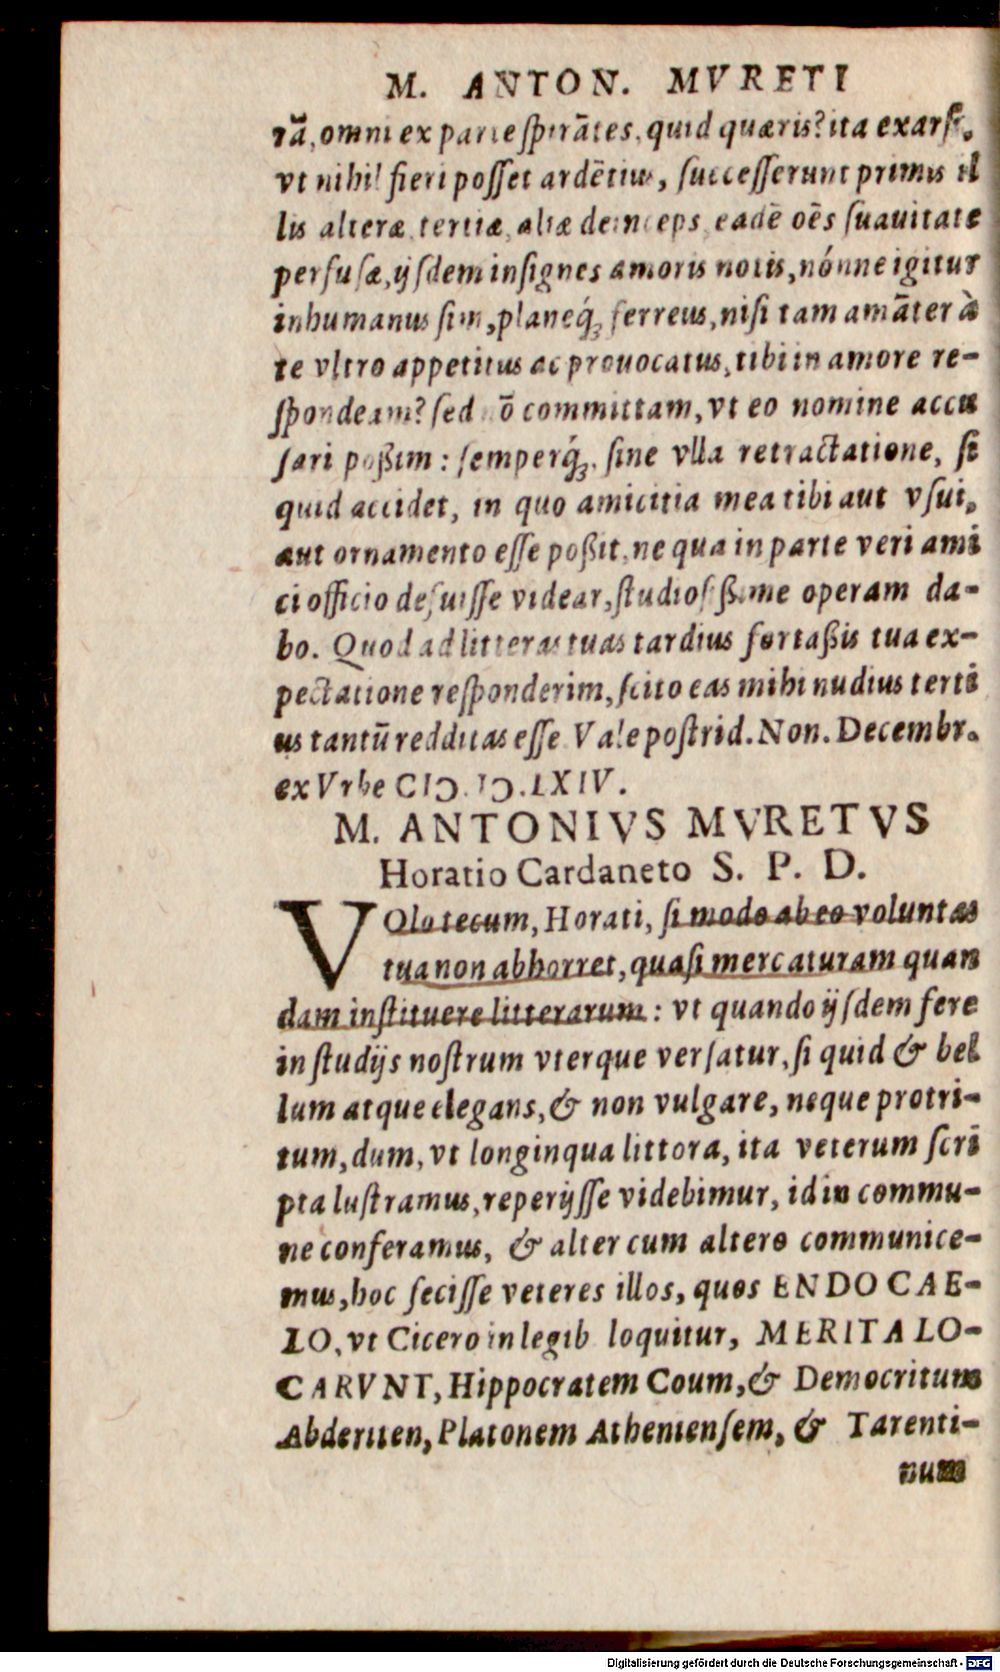 M. ANTON. MVRETI
rā, omni ex parte ſpirātes, quid quæris? ita exarſi.
vt nihil fieri poſſet ardētius, ſucceſſerunt primis il
lis alteræ, tertiæ, aliæ deinceps, eadē oēs ſuauitate
perfuſæ, ijſdem inſignes amoris notis, nónne igitur
inhumanus ſim, planeq́; ferreus, niſi tam amāter à
te vltro appetitus ac prouocatus, tibi in amore re-
ſpondeam? ſed nō committam, vt eo nomine accu
ſari poßim: ſemperq́;. ſine vlla retractatione, ſi
quid accidet, in quo amicitia mea tibi aut vſui,
aut ornamento eſſe poßit, ne qua in parte veri ami
ci officio defuiſſe videar, ſtudioſißime operam da-
bo. Quod ad litteras tuas tardius fortaßis tua ex-
pectatione reſponderim, ſcito eas mihi nudius terti
us tantū redditas eſſe. Vale poſtrid. Non. Decembr.
ex Vrbe CIↃ.IↃ.LXIV.
M. ANTONIVS MVRETVS
Horatio Cardaneto S. P. D.
VOlo tecum, Horati, ſi modo ab eo voluntas
tua non abhorret, quaſi mercaturam quan
dam inſtituere litterarum: vt quando ijſdem fere
in ſtudijs noſtrum vterque verſatur, ſi quid & bel
lum atque elegans, & non vulgare, neque protri-
tum, dum, vt longinqua littora, ita veterum ſcri
pta luſtramus, reperijſſe videbimur, id in commu-
ne conferamus, & alter cum altero communice-
mus, hoc feciſſe veteres illos, quos ENDO CAE-
LO, vt Cicero in legib. loquitur, MERITA LO-
CARVNT, Hippocratem Coum, & Democritum
Abderiten, Platonem Athenienſem, & Tarenti-
num
Digitalisierung gefördert durch die Deutsche Forschungsgemeinschaft - DFG